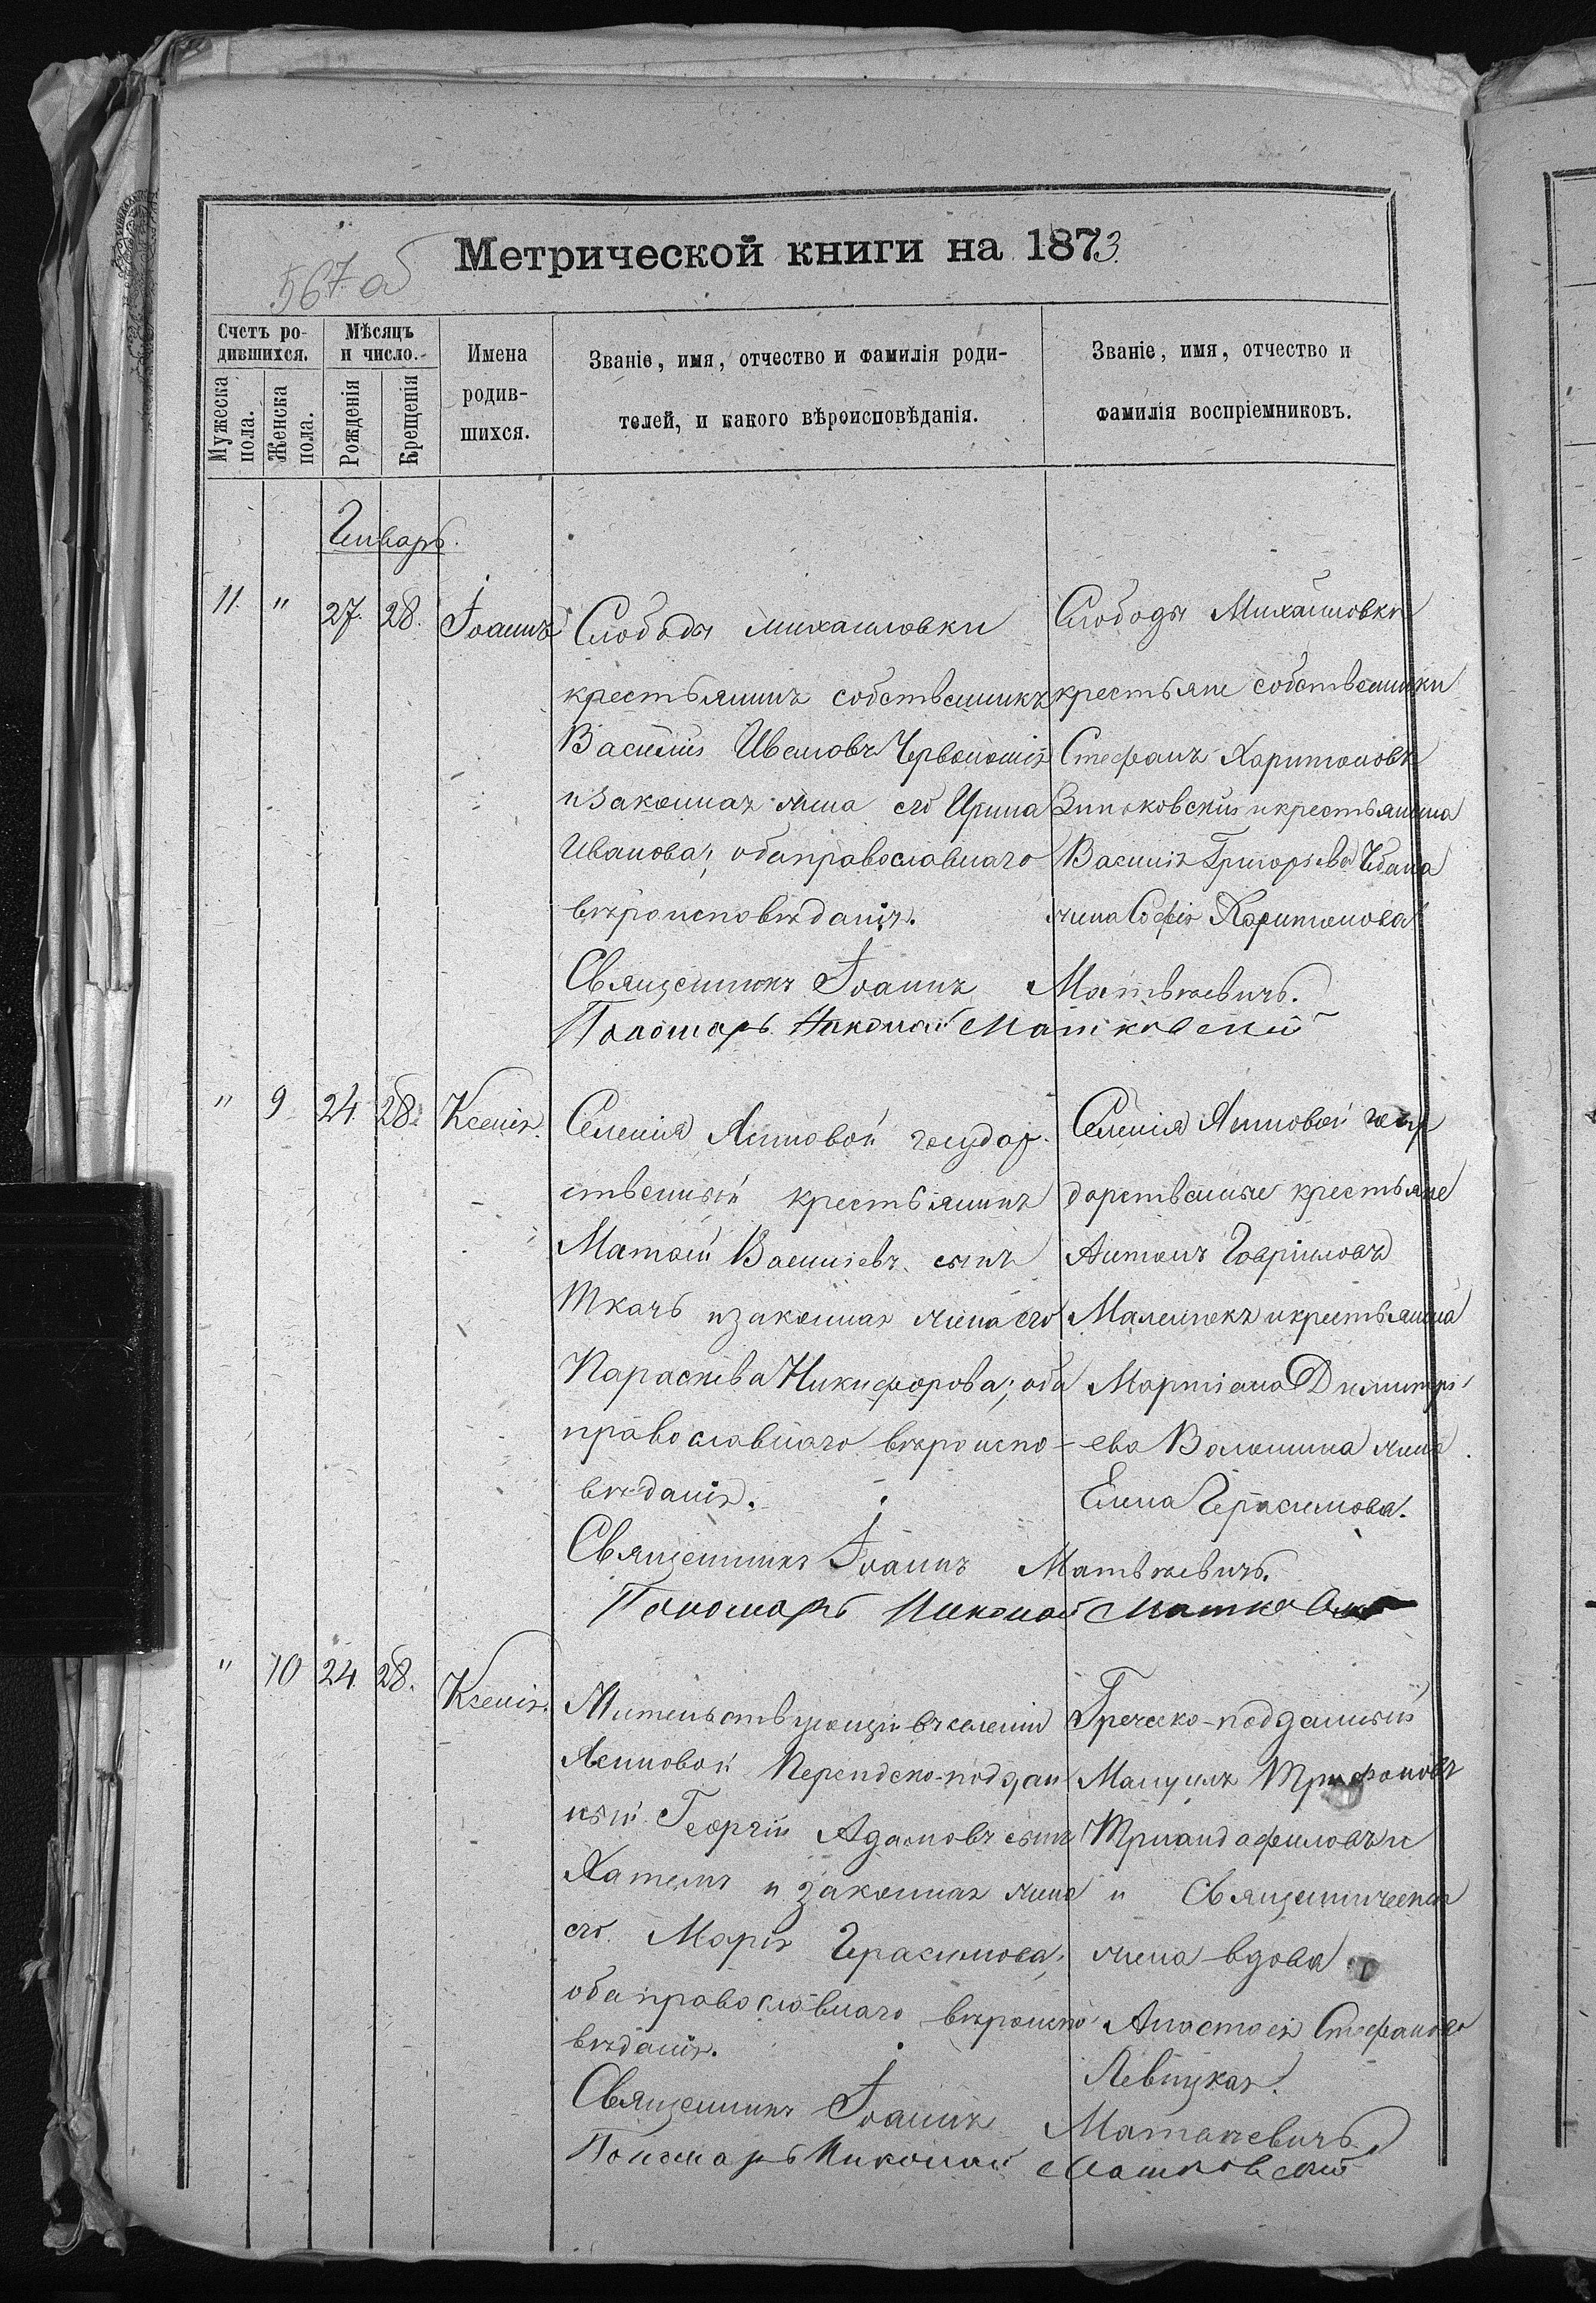 567 об
Метрической книги на 1873.
Счетъ ро-
дившихся.
Мужеска
пола.
Женска
пола.
Мѣсяцъ
и число.
Рожденія
Крещенія
Имена
родив-
шихся.
Званіе, имя, отчество и фамилія роди-
телей, и какого вѣроисповѣданія.
Званіе, имя, отчество и
фамилія воспріемниковъ.
Генварь.
11. " 27. 28. Іоаннъ
Слободы Михайловки
крестьянинъ собственникъ
Василій Ивановъ
и законная жена его Ирина
Иванова; оба православнаго
вѣроисповѣданія.
Слободы Михайловки
крестьяне собственники
Стефанъ Харитоновъ
Зиньковскій и крестьянина
Василія Григорьева
жена Софія Харитонова
Священникъ Іоаннъ Матвѣевичъ.
Пономарь Николай Матковскій
" 9 24. 28. Ксенія.
Селенія Ясиновой государ-
ственный крестьянинъ
Матѳей Василіевъ сынъ
Ткачъ и законная жена его
Параскева Никифорова; оба
православнаго вѣроиспо-
вѣданія.
Селенія Ясиновой госу
дарственные крестьяне
Антонъ Гавріиловъ
и крестьянина
Мартіана Димитрі-
ева Волошина жена
Елена Герасимова.
Священникъ Іоаннъ Матвѣевичъ.
Пономарь Николай
" 10 24. 28. Ксенія.
Жительствующій въ селеніи
Ясиновой Персидско-поддан
ный Георгій Адамовъ сынъ
и законная жена
его Марія Герасимова;
оба православнаго вѣроиспо-
вѣданія.
Греческо-подданный
Мануилъ Трифоновъ
Тріандафиловъ и
и Священническая
жена вдова
Анастасія Стефанова
Левицкая.
Священникъ Іоаннъ Матвѣевичъ.
Пономарь Николай Матковскій